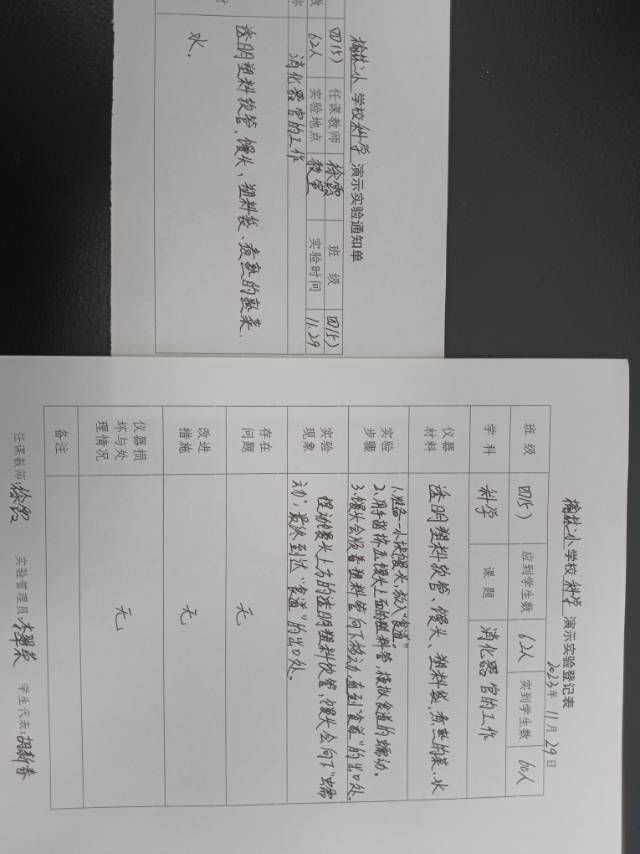 学校科学演示实验通知单
四(5) 任课教师 徐霞 班级 四(5)
62人 实验地点 教室 实验时间 11.29
消化器官的工作
透明塑料软管、馒头、塑料袋、煮熟的蔬菜、
水、
小学校科学演示实验登记表
2023年11月29日
班级 四(5) 应到学生数 62人 实到学生数 60人
学科 科学 课题 消化器官的工作
仪器材料 透明塑料软管、馒头、塑料袋、煮熟的菜、水
实验步骤 1、准备一小块馒头,放入"食道"。
2、用手指挤压馒头上面的塑料管,模拟食道的蠕动。
3、馒头会顺着塑料管向下移动,直到"食道"的出口处。
实验现象 馒头上方的透明塑料软管,馒头会向下"蠕
动",最终到达"食道"的出口处。
存在问题 无
改进措施 无
仪器损坏与处理情况 无
备注
任课教师:徐霞 实验管理员: 学生代表:胡新香